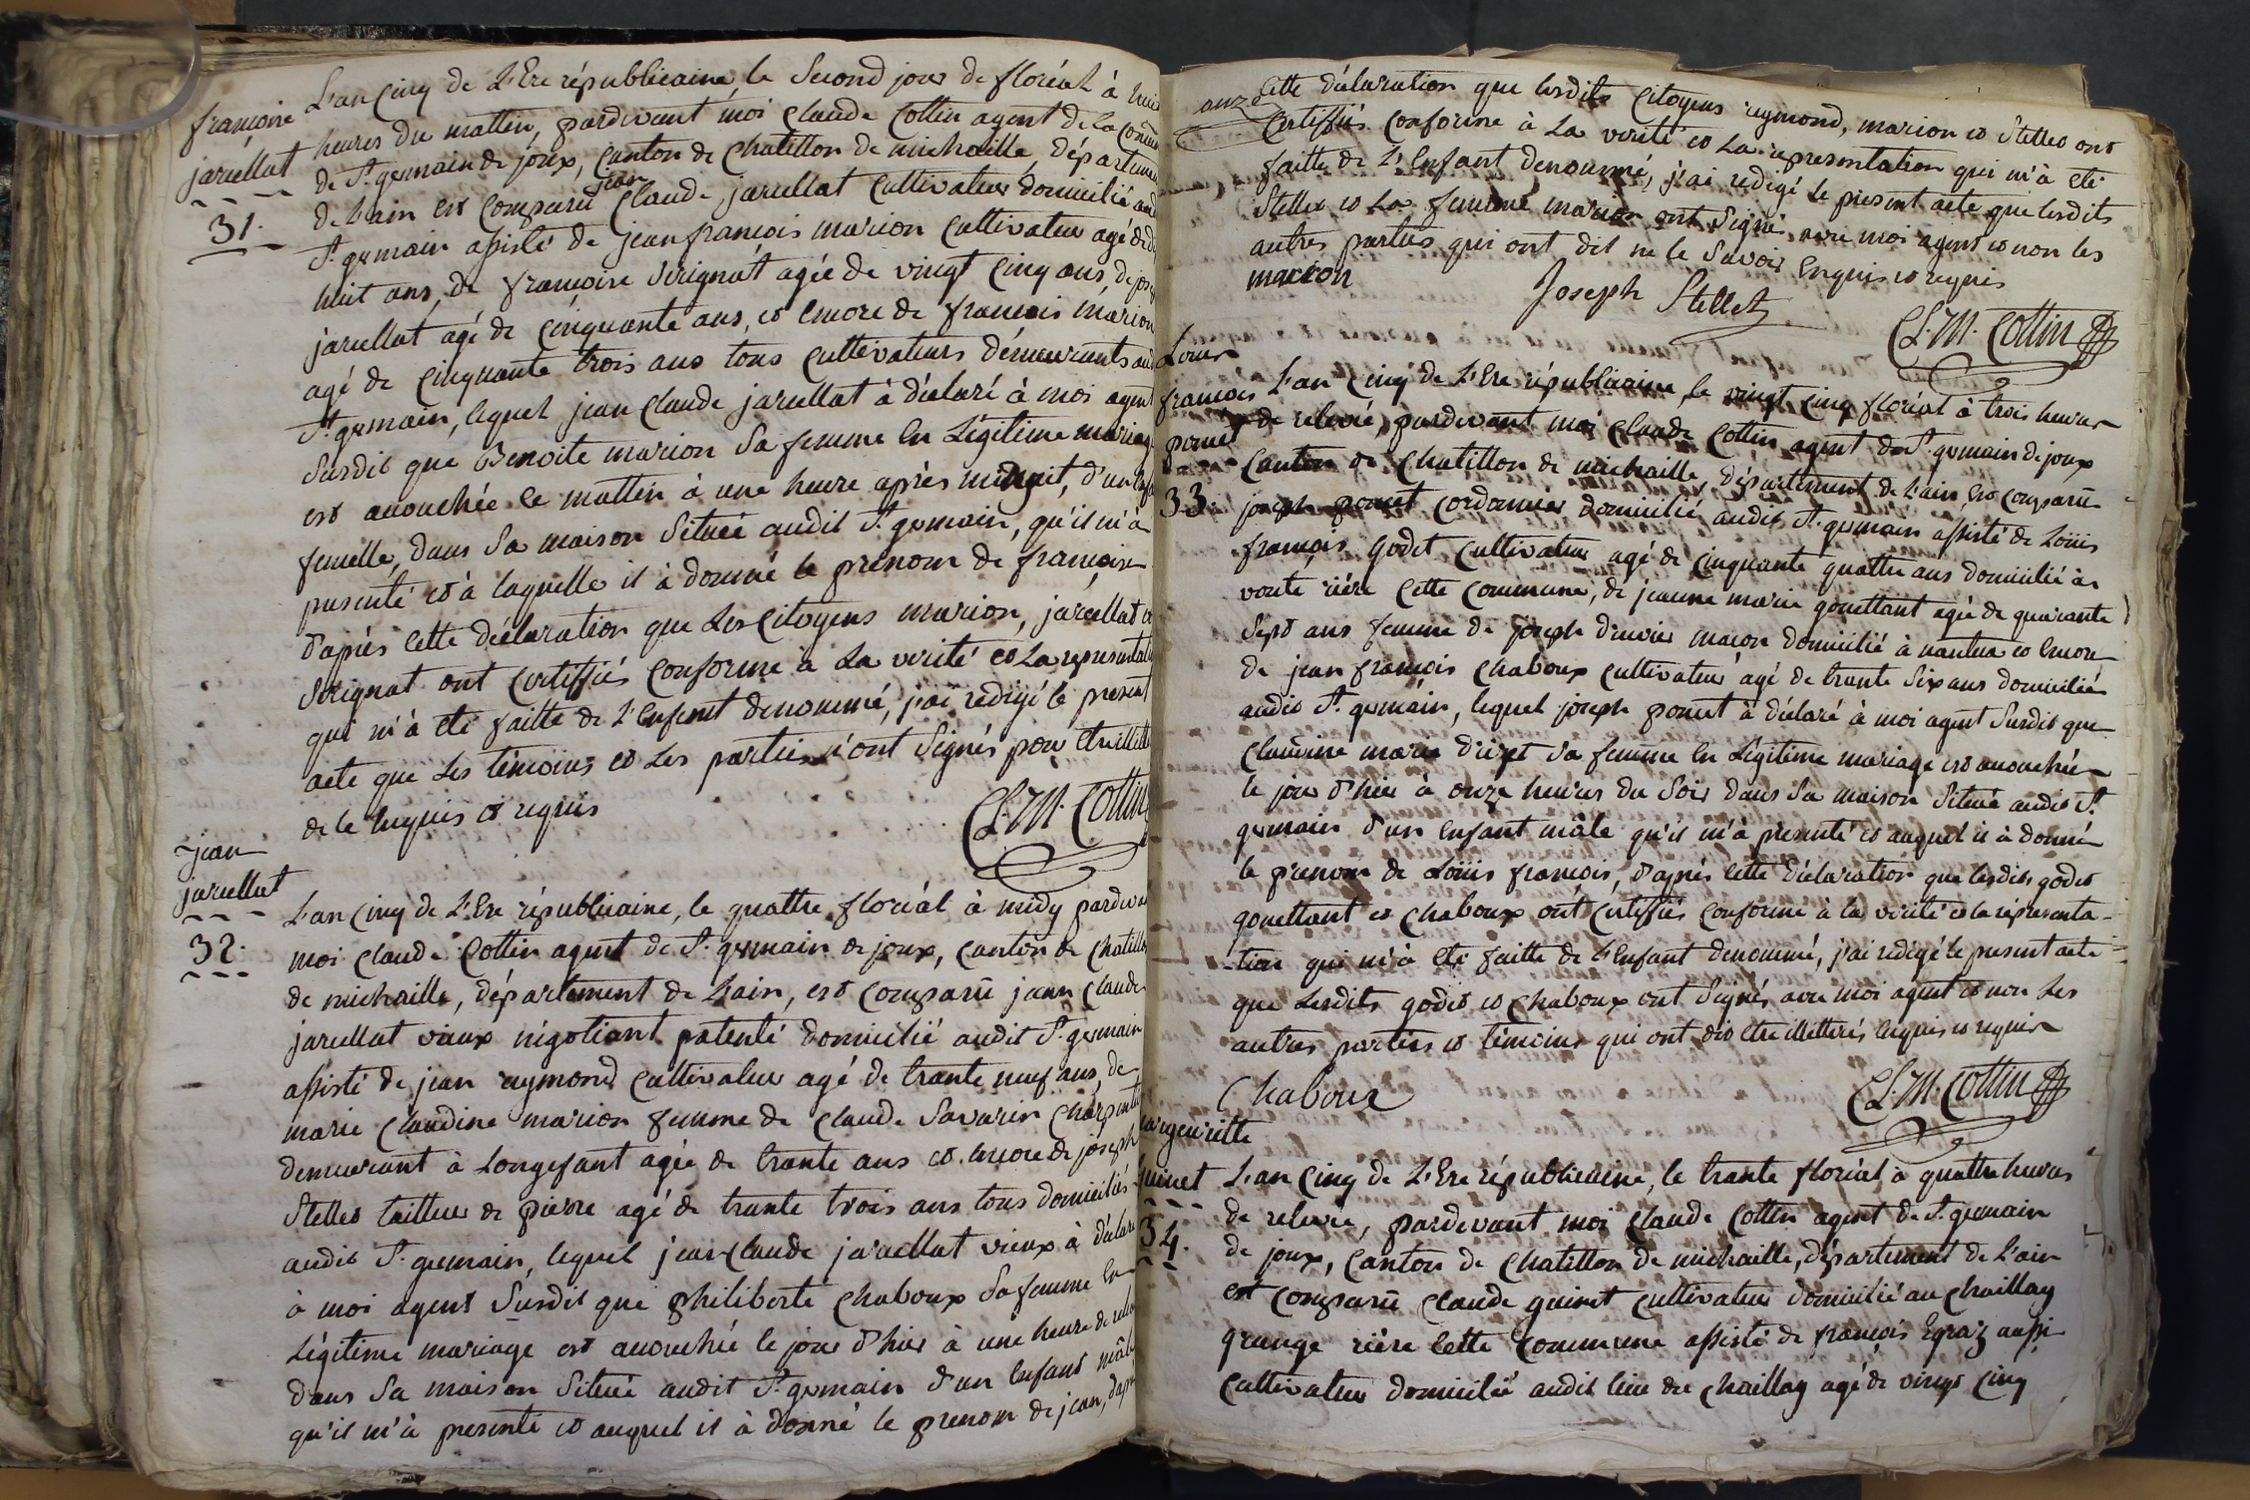 françoise
jarcellat
31.
L'an cinq de L'Ere républicaine, le Second jour de floréal à huit
heures du mattin, pardevant moi Claude Cottin agent de la Commune
de St. germain de joux, Canton de Chatillon de michaille, département
de L'ain est Comparû jean Claude jarcellat Cultivateur domicilié audit
St. germain assisté de jean françois marion Cultivateur agé de dix
huit ans, de françoise Seirignat agée de vingt Cinq ans, de joseph
jarcellat agé de Cinquante ans, et encore de francois marion
agé de Cinquante trois ans tous Cultivateurs démeurants audit
St. germain, lequel jean Claude jarcellat à déclaré à moi agent
Susdit que Benoite marion Sa femme en Légitime mariage
est accouchée ce mattin à une heure après minuit, d'un Enfant
femelle, dans Sa maison Située audit St. germain, qu'il m'à
presenté et à laquelle il à donné le prénom de françoise
d'après cette déclaration que Les Citoyens marion, jarcellat et
Seirignat ont Certiffiés Conforme à La verité et La représentation
qui m'à eté faitte de L'Enfant denommé, j'ai redigé le présent
acte que Les témoins et Les parties n'ont Signés pour etre illettrés
de ce enquis et requis
Cl. M. Cottin
jean
jarcellat
32.
L'an Cinq de L'Ere républicaine, le quattre floréal à midy pardevant
moi Claude Cottin agent de St. germain de joux, Canton de Chatillon
de michaille, département de L'ain, est Comparû jean Claude
jarcellat vieux négotiant patenté domicilié audit St. germain
assisté de jean reymond Cultivateur agé de trante neuf ans, de
marie Claudine marion femme de Claude Savarin Charpentier
demeurant à Longefant agée de trante ans et encore de joseph
Stellet tailleur de pierre agé de trante trois ans tous domiciliés
audit St. germain, lequel jean Claude jarcellat vieux à déclaré
à moi agent Susdit que philiberte Chaboux Sa femme en
Légitime mariage est accouchée le jour d'hier à une heure de relevée
dans Sa maison Située audit St. germain d'un Enfant mâle
qu'il m'à presenté et auquel il à donné le prenom de jean, d'après
onze
cette déclaration que lesdits Citoyens reymond, marion et Stellet ont
Certiffiés Conforme à La verité et La représentation qui m'à eté
faitte de L'Enfant denommé, j'ai redigé le présent acte que lesdits
Stellet et La femme marion ont Signé, avec moi agent et non les
autres parties qui ont dit ne le Savoir Enquis et requis
marion
Joseph Stellet
Cl. M. Cottin
Louis
françois
ponset
33.
L'an Cinq de L'Ere républicaine, le vingt cinq floréal à trois heures
de relevée, pardevant moi Claude Cottin agent de St. germain de joux
Canton de Chatillon de michaille, département de L'ain, est Comparû
joseph poncet Cordonnier domicilié audit St. germain assisté de Loüis
françois godet Cultivateur agé de Cinquante quattre ans domicilié à
voute rière Cette Commune, de jeanne marie gouettant agée de quarante
Sept ans femme de joseph maçon domicilié à nantua et Encore
de jean françois Chaboux Cultivateur agé de trante Six ans domicilié
audit St. germain, lequel joseph poncet à déclaré à moi agent Susdit que
Claudine marie Sa femme en Légitime mariage est accouchée
le jour d'hier à onze heures du Soir dans Sa maison Située audit St.
germain d'un Enfant mâle qu'il m'à presenté et auquel il à donné
le prenom de Loüis francois, d'après cette déclaration que lesdits godet
gouettant et Chaboux ont Certiffiés Conforme à la verité et la réprésenta-
-tion qui m'à eté faitte de L'Enfant denommé, j'ai redigé le present acte
que Lesdits godet et Chaboux ont Signés avec moi agent et non Les
autres parties et témoins qui ont dit etre illettrés enquis et requis
Chaboux
Cl. M. Cottin
margeuritte
guinet
34.
L'an Cinq de L'Ere républicaine, le trante floréal à quattre heures
de relevée, pardevant moi Claude Cottin agent de St. germain
de joux, Canton de Chatillon de michaille, département de L'ain
est Comparû Claude guinet Cultivateur domicilié au Chaillay
grange rière Cette Commune assisté de françois Egraz aussi
Cultivateur domicilié audit lieu du Chaillay agé de vingt Cinq